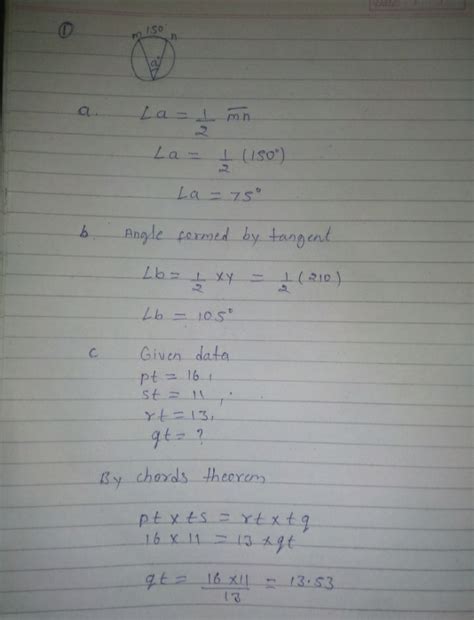 ①
m 150 n
a°
a. ∠a = 1/2 m̅n̅
∠a = 1/2 (150°)
∠a = 75°
b Angle formed by tangent
∠b = 1/2 xy = 1/2 (210)
∠b = 105°
c Given data
pt = 16,
st = 11,
rt = 13,
qt = ?
By chords theorem
pt x ts = rt x tq
16 x 11 = 13 x qt
qt = 16 x 11/13 = 13.53